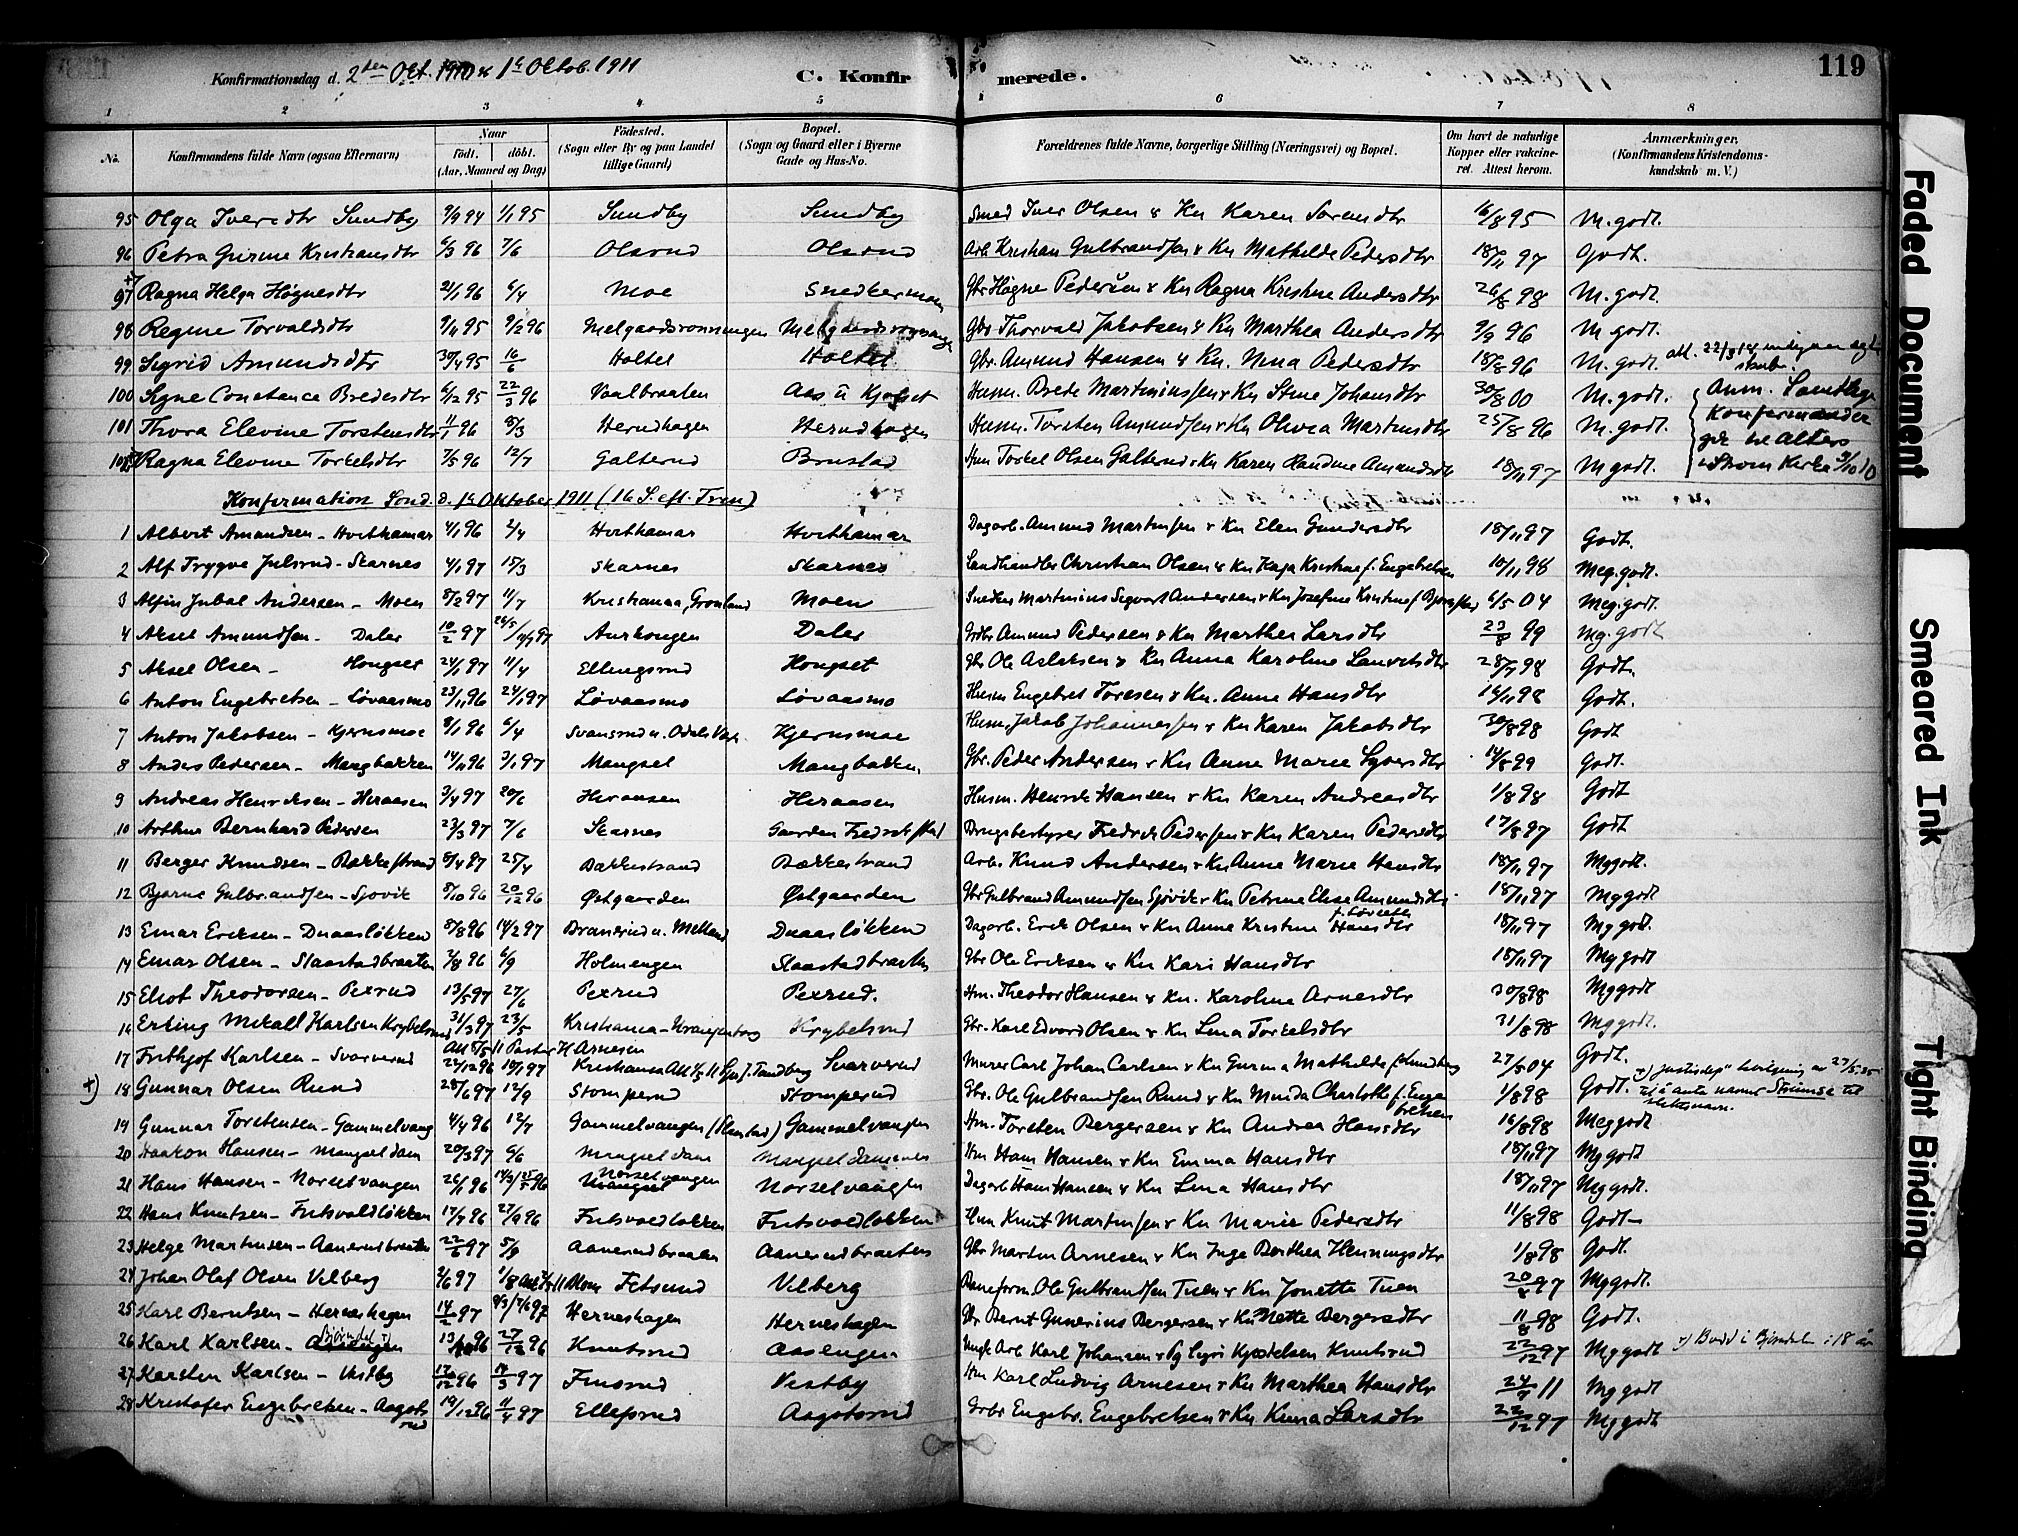 Konfirmationsdag d. 2den Oct. 1910 & 1ste Octob. 1911 C. Konfirmerede. 119
1 2 3 4 5 6 7 8
No. Konfirmandens fulde Navn (ogsaa Efternavn) Naar født. døbt. (Aar, Maaned og Dag) Fødested. (Sogn eller By og paa Landet tillige Gaard) Bopæl. (Sogn og Gaard eller i Byerne Gade og Hus-No. Forældrenes fulde Navne, borgerlige Stilling (Næringsvei) og Bopæl. Om havt de naturlige Kopper eller vakcineret. Attest herom. Anmærkninger. (Konfirmandens Kristendomskundskab m. V.)
95 Olga Iversdtr Sundby 9/9 94 1/1 95 Sundby Sundby Smed Iver Olsen & Kn Karen Sørensdtr 16/8 95 M. godt.
96 Petra Gurine Kristiansdtr 6/3 96 7/6 Olsrud Olsrud Arb. Kristian Gulbrandsen & Kn Mathilde Pedersdtr 18/11 97 Godt.
97 Ragna Helga Høgnesdtr 21/1 96 6/4 Moe Snedkermoen Gbr Høgne Pedersen & Kn Ragna Kristine Andersdtr 26/8 98 M. godt.
98 Regine Torvaldsdtr 9/11 95 9/2 96 Melgaardsrønningen Melgaardsrønningen Gbr Thorvald Jakobsen & Kn Marthea Andersdtr 9/9 96 M. godt.
99 Sigrid Amundsdtr 30/4 95 16/6 Holtet Holtet Gbr. Amund Hansen & Kn. Nina Pedersdtr 18/8 96 M. godt.
100 Signe Constance Bredesdtr 6/12 95 22/3 96 Vaalbraaten Aas u Husm. Brede Martiniussen & Kn Stine Johansdtr 30/8 00 M. godt. Anm. Samtlige
101 Thora Elevine Torstensdtr 11/1 96 8/3 Herudhagen Herudhagen Husm. Torsten Amundsen & Kn Olivia Martinsdtr 25/8 96 M. godt. Konfirmander
102 Ragna Elevine Torkelsdtr 7/5 96 12/7 Galterud Brustad Hm Torkel Olsen Galterud & Kn Karen Randine Amundsdtr 18/11 97 M godt. gik til Alters i Strøm Kirke 9/10 10
Konfirmation Sønd. d. 1ste Oktober 1911 (16 S. eft. Tref)
1 Albert Amundsen - Hvithamar 4/1 96 2/4 Hvithamar Hvithamar Dagarb. Amund Martinsen & Kn Elen Gundersdtr 18/11 97 Godt.
2 Alf Trygve Julsrud - Skarnes 4/1 97 15/3 Skarnes Skarnes Landhandler Christian Olsen & Kn Kaja Kristine f. Engebretsen 10/11 98 Meg. godt.
3 Alfin Jubal Andersen - Moen 8/2 97 11/7 Kristiania, Grønland Moen Snedker Martinius Sigvart Andersen & Kn Josefine Kristine f. 6/5 04 Meg. godt.
4 Aksel Amundsen - Daler 10/2 97 Aurhougen Daler Gbr Amund Pedersen & Kn Marthea Larsdtr 23/8 99 Mg. godt
5 Aksel Olsen - Hongset 24/1 97 11/4 Ellingsrud Hongset Gbr Ole Aslaksen & Kn Anna Karoline Lauritsdtr 28/7 98 Godt.
6 Anton Engebretsen - Løvaasmo 23/11 96 24/1 97 Løvaasmo Løvaasmo Husm Engebret Toresen & Kn. Anne Hansdtr 16/11 98 Godt.
7 Anton Jakobsen - Kjernsmoe 8/1 96 6/4 Svansrud u. Odals Værk Kjernsmoe Husm. Jakob Johannessen & Kn Karen Jakobsdtr 30/8 98 Godt
8 Anders Pedersen - Mangbakken 14/11 96 3/1 97 Mangset Mangbakken Gbr. Peder Andersen & Kn Anne Marie Syversdtr 14/8 99 Godt.
9 Andreas Henriksen - Heraasen 3/4 97 20/6 Heraasen Heraasen Husm. Henrik Hansen & Kn Karen Andreasdtr 1/8 98 Godt
10 Arthur Bernhard Pedersen 23/3 97 7/6 Skarnes Gaarden Fredrikstad Brugsbestyrer Fredrik Pedersen & Kn Karen Pedersdtr 17/8 97 Godt
11 Berger Knudsen - Bækkestrand 8/4 97 25/4 Bækkestrand Bækkestrand Arb. Knud Andersen & Kn Anne Marie Hansdtr 18/11 97 Mg godt.
12 Bjarne Gulbrandsen - Sjøvik 8/10 96 20/12 96 Østgaarden Østgaarden Gbr Gulbrand Amundsen Sjøvik & Kn Petrine Elise Amundsdtr 18/11 97 Mg godt
13 Einar Eriksen - Duaasløkken 8/8 96 14/2 97 Bransrud u. Metland Duaasløkken Dagarb. Erik Olsen & Kn Anna Kristine Hansdtr 18/11 97 Mg godt.
14 Einar Olsen - Slaastadbraaten 7/8 96 6/9 Holmengen Slaastadbraaten Gbr Ole Eriksen & Kn Kari Hansdtr 18/11 97 Mg godt
15 Eliot Theodorsen - Pexrud 13/5 97 27/6 Pexrud Pexrud. Hm. Theodor Hansen & Kn. Karoline Arnesdtr 30/8 98 Mg godt
16 Erling Mikall Karlsen Krybelsrud 31/3 97 23/5 Kristiania - Krybelsrud Gbr. Karl Edvard Olsen & Kn Lina Torkelsdtr 31/8 98 Mg godt.
Att 5/5 11 Pastor H. Arnesen
17 Frithjof Karlsen - Svarverud 22/12 96 19/4 97 Kristiania Svarverud Murer Carl Johan Carlsen & Kn Gurina Mathilde f. Lundberg 27/5 04 Godt.
x) 18 Gunnar Olsen Ruud 28/6 97 12/9 Stomperud Stomperud Gbr. Ole Gulbrandsen Ruud & Kn Minda Charlotte f. Engebretsen 1/8 98 Godt. x) Justisdep's bevilgning av 27/5 25 til å anta navnet Strømså til slektsnavn.
19 Gunnar Torstensen - Gammelvang 4/4 96 12/7 Gammelvangen Gammelvangen Hm. Torsten Bergersen & Kn Andrea Hansdtr 16/8 98 Meg godt
20 Haakon Hansen - Mangseldam 20/3 97 6/6 Mangseldam Mangseldammen Hm Hans Hansen & Kn Emma Hansdtr 18/11 97 Mg godt
21 Hans Hansen - Norsetvangen 26/1 96 Norsetvangen Norsetvangen Dagarb Hans Hansen & Kn Lina Hansdtr 18/11 97 Mg godt.
22 Hans Knutsen - Fritsvoldløkken 17/7 96 27/9 96 Fritsvoldløkken Fritsvoldløkken Hm Knut Martinsen & Kn Marie Pedersdtr 11/8 98 Godt -
23 Helge Martinsen - Aanerudbraaten 22/6 97 5/9 Aanerudbraaten Aanerudbraaten Gbr Martin Arnesen & Kn Inge Berthea Henningsdtr 1/8 98 Godt.
24 Johan Olaf Olsen Vilberg 2/6 97 1/8 Fetsund Vilberg Baneform. Ole Gulbrandsen Tuen & Kn Jonette Tuen 20/8 97 Mg godt.
25 Karl Berntsen - Herneshagen 14/2 97 Herneshagen Herneshagen Gbr Bernt Gunerius Bergersen & Kn Mette Bergersdtr 11/8 98 Godt.
26 Karl Karlsen - Aasengen Bjørndal x) 13/10 96 27/12 96 Knutsrud Aasengen Ungk Arb Karl Johansen & Pg Siri Kjostelsen Knutsrud 22/12 97 Mg godt x) Budd i Bjørndalen i 18 år
27 Karsten Karlsen - Vestby 12/12 96 14/3 97 Finsrud Vestby Hm Karl Ludvig Arnesen & Kn Marthea Hansdtr 24/7 11 Mg godt
28 Kristofer Engebretsen - Aagotsrud 19/12 96 11/4 97 Ellefsrud Aagotsrud Gbr Engebr. Engebretsen & Kn Larsdtr 22/12 97 Mg godt
Faded Document
Smeared Ink
Tight Binding